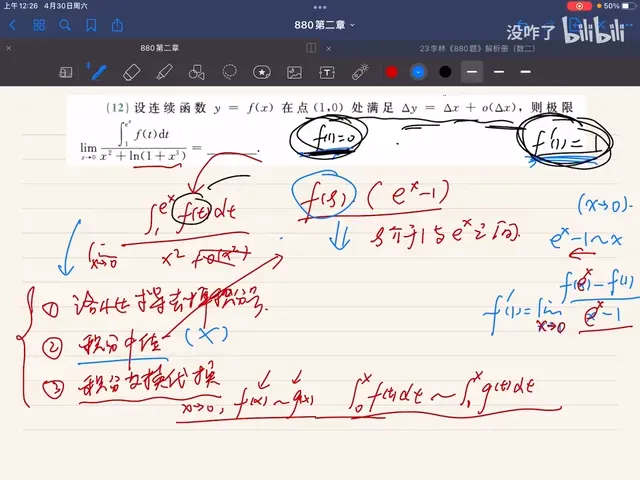 上午12:26 4月30日周六
50%
880第二章
没咋了 bilibili
880第二章
23李林《880题》解析册（数二）
(12) 设连续函数 y = f(x) 在点(1,0)处满足 Δy = Δx + o(Δx)，则极限
lim x→0 ∫₁^{eˣ} f(t)dt / x² + ln(1 + x³) = ______.
f(1)=0
f'(1)=1
lim x→0 ∫₁^{eˣ} f(t)dt / x² + o(x²)
f(ξ)(eˣ-1)
ξ介于1与eˣ之间
(x→0).
eˣ-1~x
f'(1)=lim x→0 f(eˣ)-f(1) / eˣ-1
① 洛必达 求导去掉积分号.
② 积分中值 (X)
③ 积分变换代换
x→0, f(x)~g(x) ∫₀ˣ f(t)dt ~ ∫₁ˣ g(t)dt